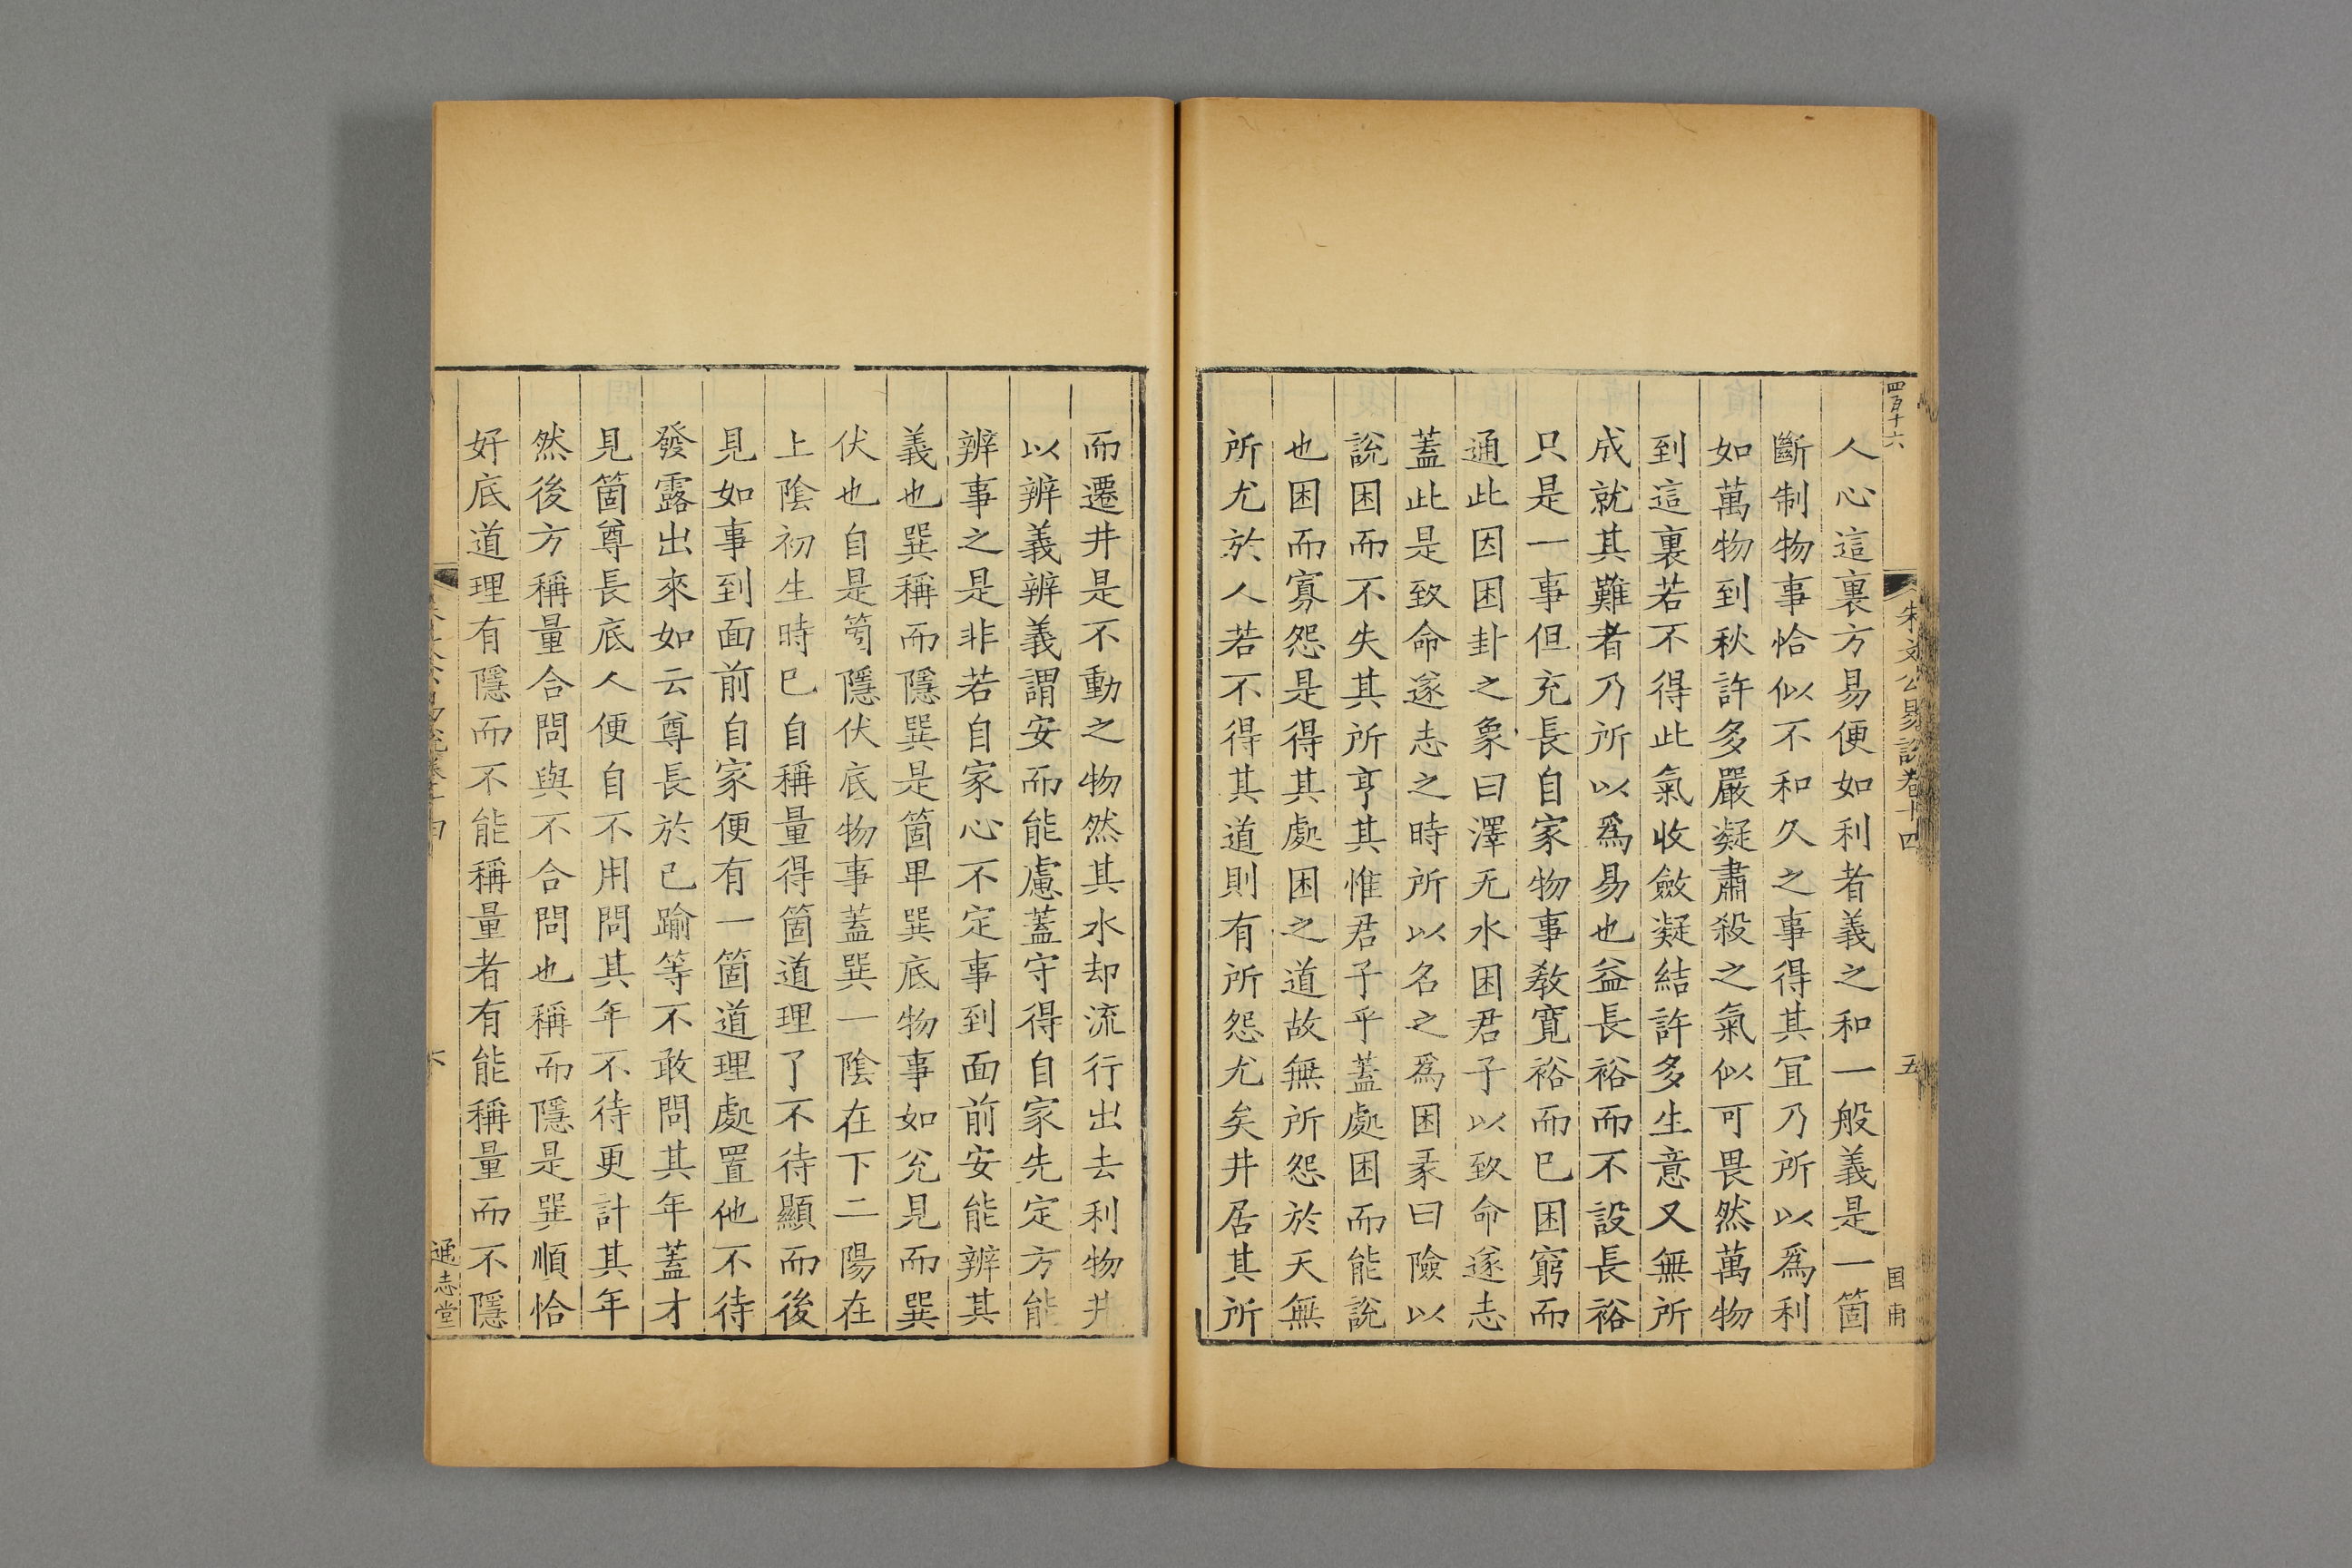 四百十六
朱文公易說卷十四
五
国甫
人心這裏方易便如利者義之和一般義是一箇
斷制物事恰似不和久之事得其宜乃所以爲利
如萬物到秋許多嚴凝肅殺之氣似可畏然萬物
到這裏若不得此氣收斂凝結許多生意又無所
成就其難者乃所以爲易也益長裕而不設長裕
只是一事但充長自家物事教寬裕而已困窮而
通此因困卦之象曰澤无水困君子以致命遂志
蓋此是致命遂志之時所以名之爲困彖曰險以
說困而不失其所亨其惟君子乎蓋處困而能說
也困而寡怨是得其處困之道故無所怨於天無
所尤於人若不得其道則有所怨尤矣井居其所
而遷井是不動之物然其水却流行出去利物井
以辨義辨義謂安而能慮蓋守得自家先定方能
辨事之是非若自家心不定事到面前安能辨其
義也巽稱而隱巽是箇卑巽底物事如兊見而巽
伏也自是箰隱伏底物事蓋巽一陰在下二陽在
上陰初生時已自稱量得箇道理了不待顯而後
見如事到面前自家便有一箇道理處置他不待
發露出來如云尊長於己踰等不敢問其年蓋才
見箇尊長底人便自不用問其年不待更計其年
然後方稱量合問與不合問也稱而隱是巽順恰
好底道理有隱而不能稱量者有能稱量而不隱
六
通志堂